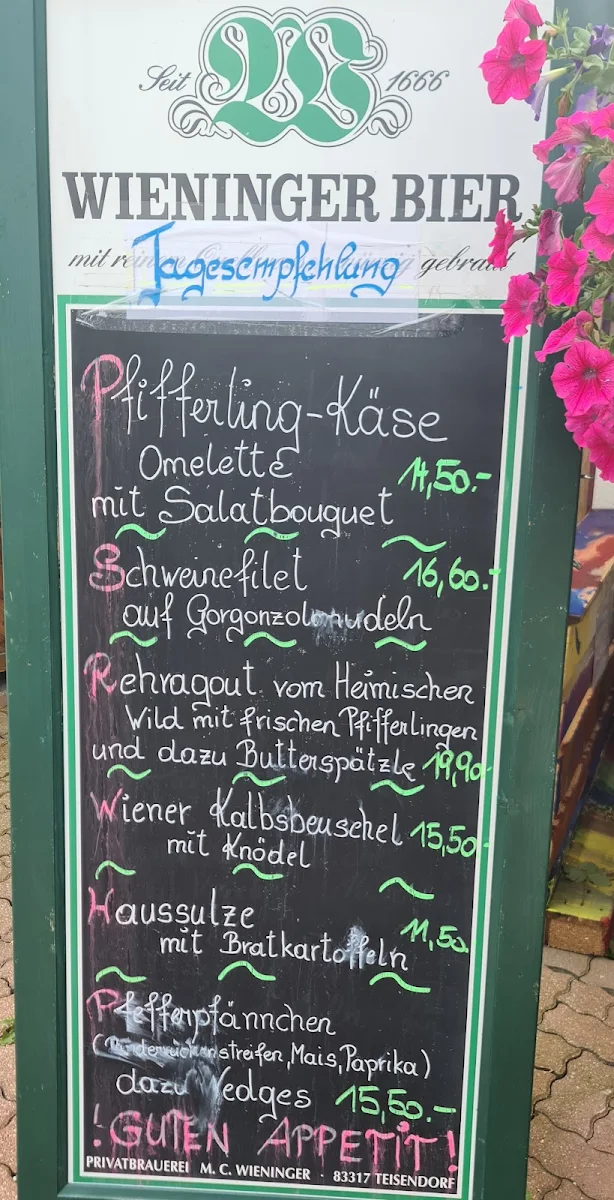 Seit 1666
WIENINGER BIER
mit gebraut
Tagesempfehlung
Pfifferling-Käse
Omelette 14,50.-
mit Salatbouquet
Schweinefilet 16,60.-
auf Gorgonzolanudeln
Rehragout vom Heimischen
Wild mit frischen Pfifferlingen
und dazu Butterspätzle 19,90-
Wiener Kalbsbeuschel 15,50-
mit Knödel
Haussulze 11,50.
mit Bratkartoffeln
Pfefferpfännchen
(Rinderrückenstreifen, Mais, Paprika)
dazu Wedges 15,50.-
! GUTEN APPETIT!
PRIVATBRAUEREI M. C. WIENINGER · 83317 TEISENDORF